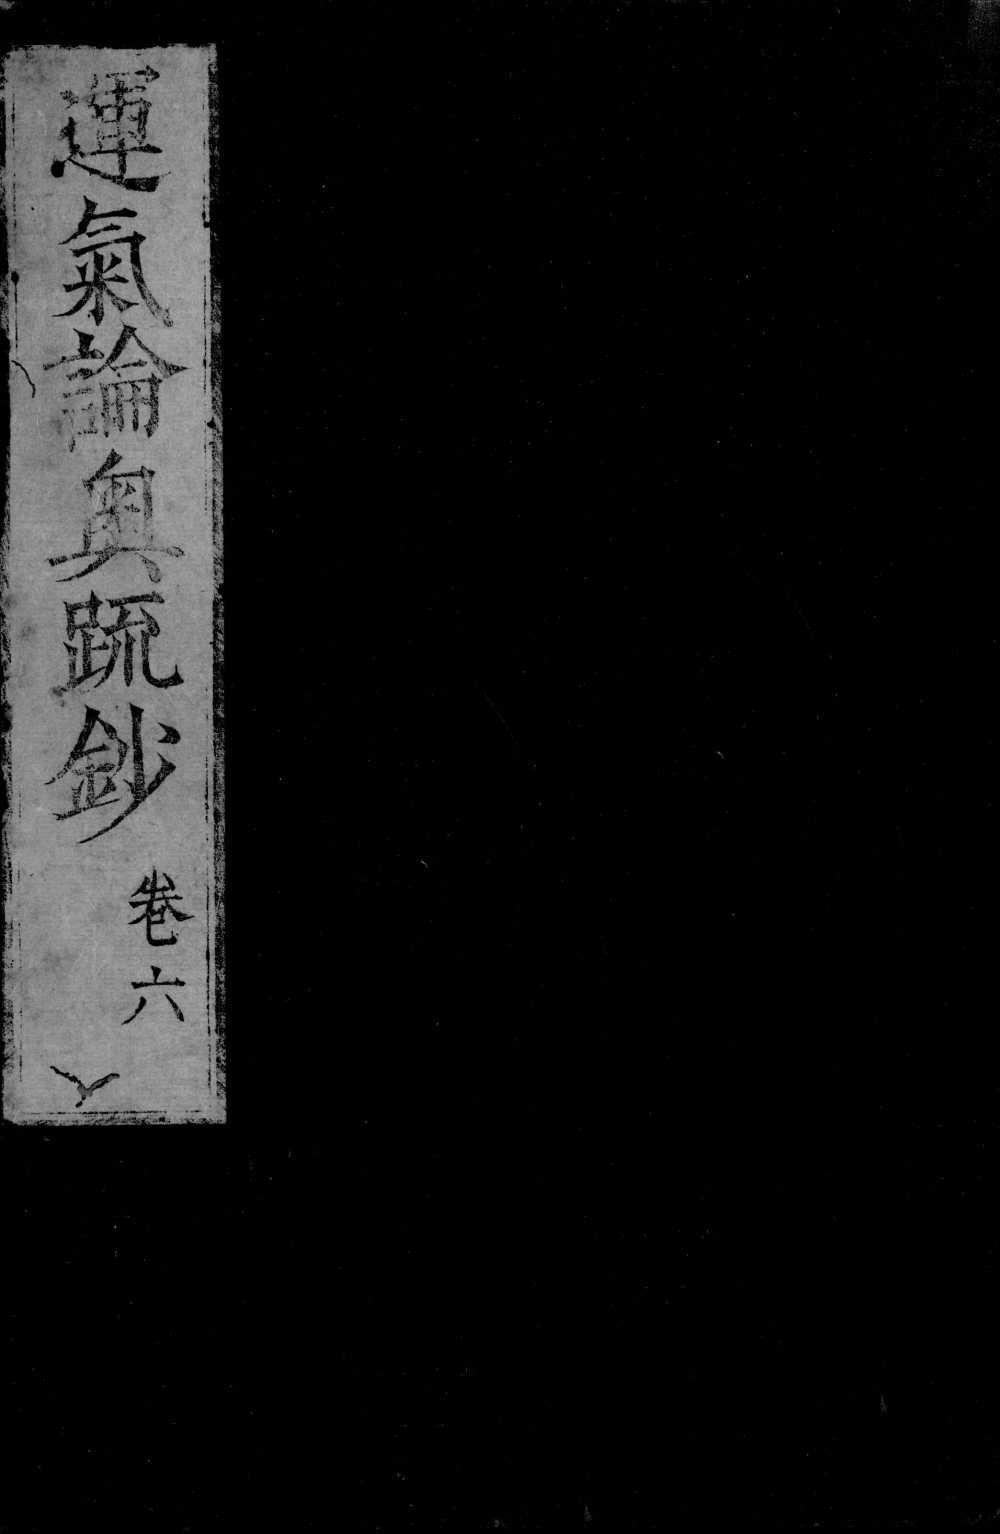 運氣論奧疏鈔
卷六